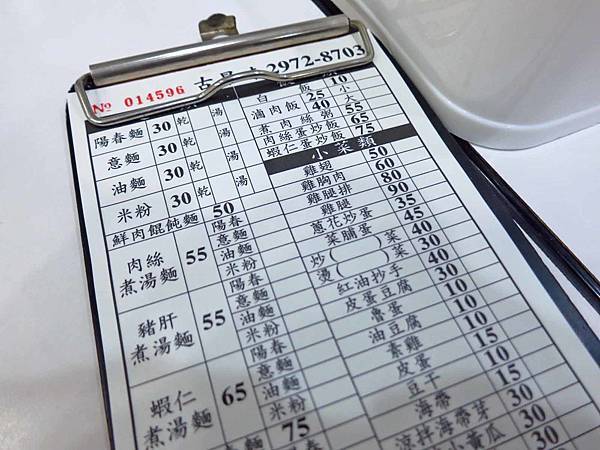 № 014596 古 2972-8703
陽春麵 30 乾 湯
意麵 30 乾 湯
油麵 30 乾 湯
米粉 30 乾 湯
鮮肉餛飩麵 50
肉絲
煮湯麵 55
陽春
意麵
油麵
米粉
豬肝
煮湯麵 55
陽春
意麵
油麵
米粉
蝦仁
煮湯麵 65
陽春
意麵
油麵
米粉
75
白飯 10
滷肉飯 25 小
40 大
煮肉絲粥 55
肉絲蛋炒飯 65
蝦仁蛋炒飯 75
小菜類
雞翅 50
雞胸肉 60
雞腿排 80
雞腿 90
蔥花炒蛋 35
菜脯蛋 45
炒( )菜 40
燙( )菜 30
紅油抄手 40
皮蛋豆腐 30
魯蛋 10
油豆腐 10
素雞 10
皮蛋 15
豆干 10
海帶 15
涼拌海帶芽 30
小黃瓜 30